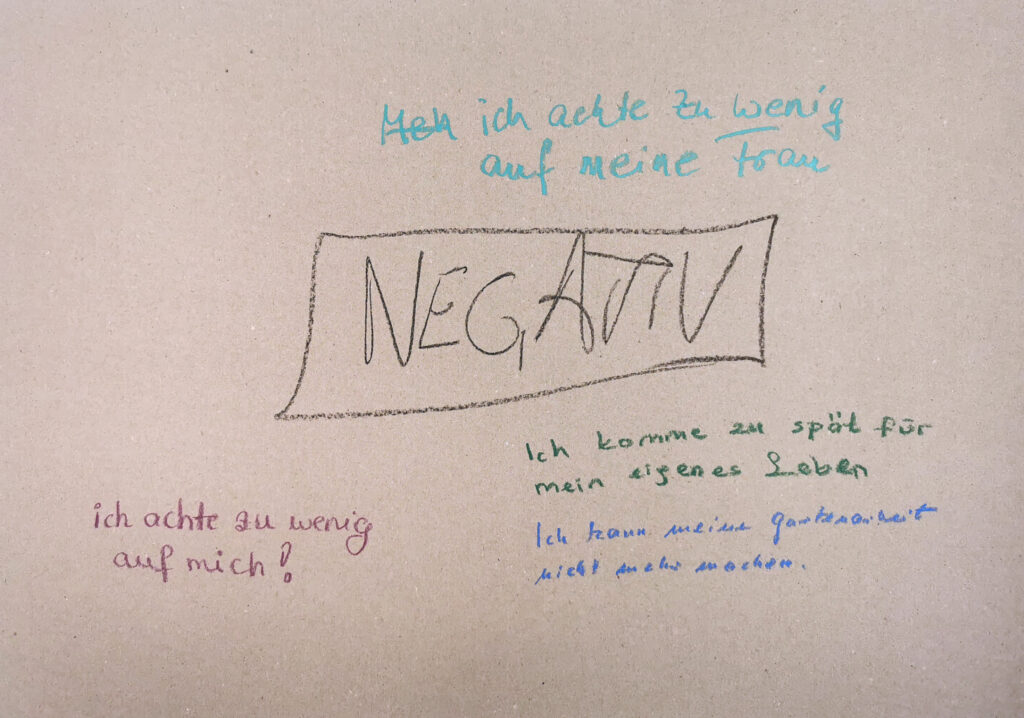 ich achte zu wenig
auf meine Frau
NEGATIV
Ich komme zu spät für
mein eigenes Leben
ich achte zu wenig
auf mich!
Ich kann meine Gartenarbeit
nicht mehr machen.